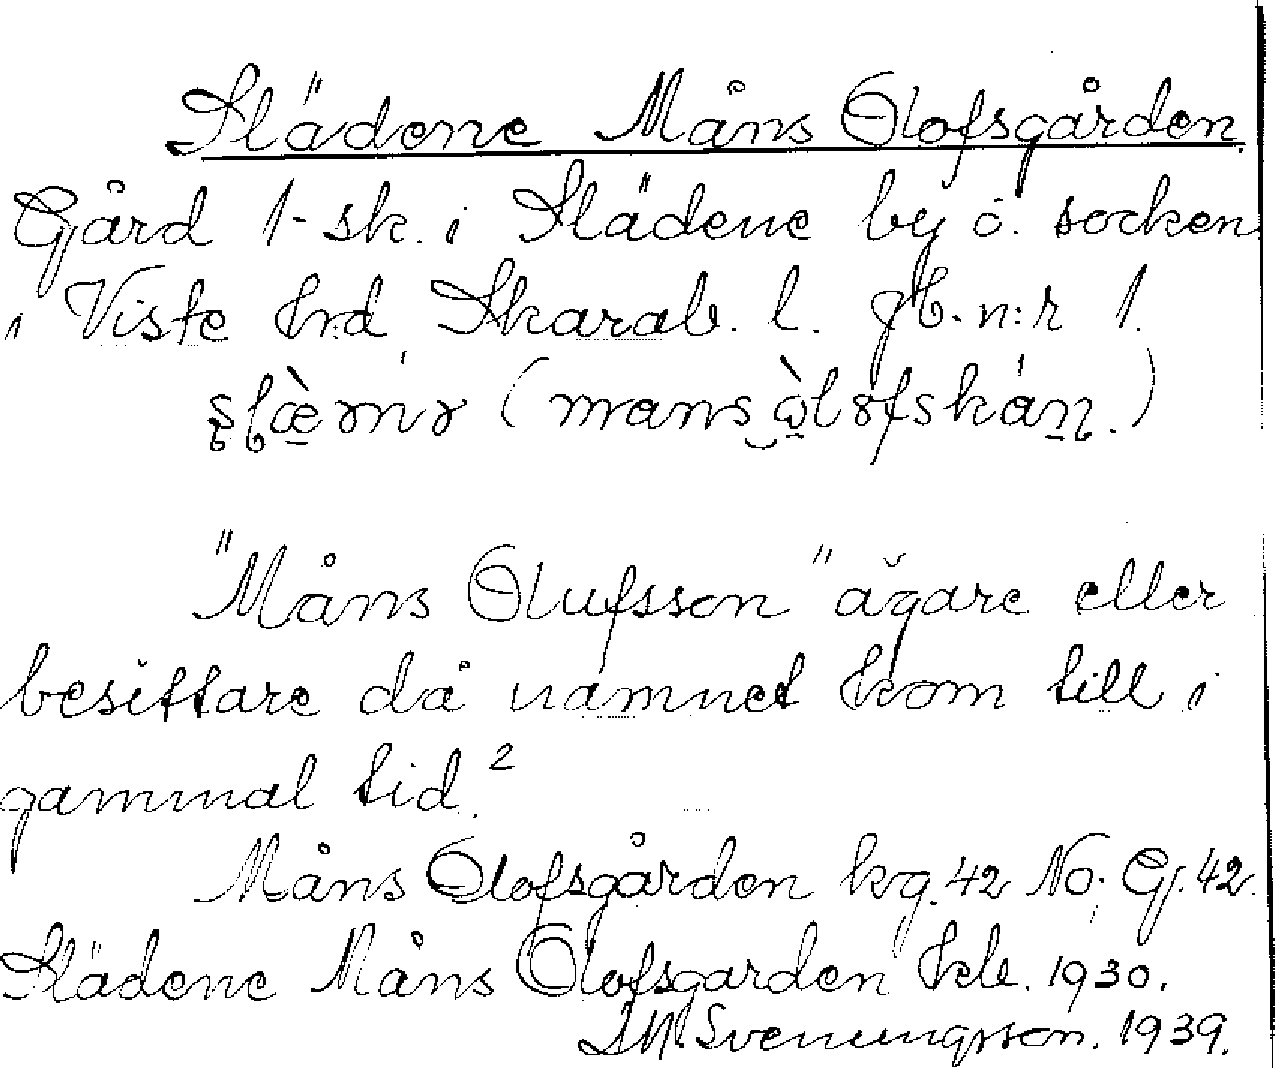 Slädene Måns Olofsgården.
Gård 1-sk. i Slädene by o. socken
i Viste hrd Skarab. l. jb. n:r 1.
(mans
"Måns Olufsson" ägare eller
besittare då namnet kom till i
gammal tid.²
Måns Olofsgården kg. 42 No. Gj. 42.
Slädene Måns Olofsgården kb. 1930.
Svenungsson. 1939.